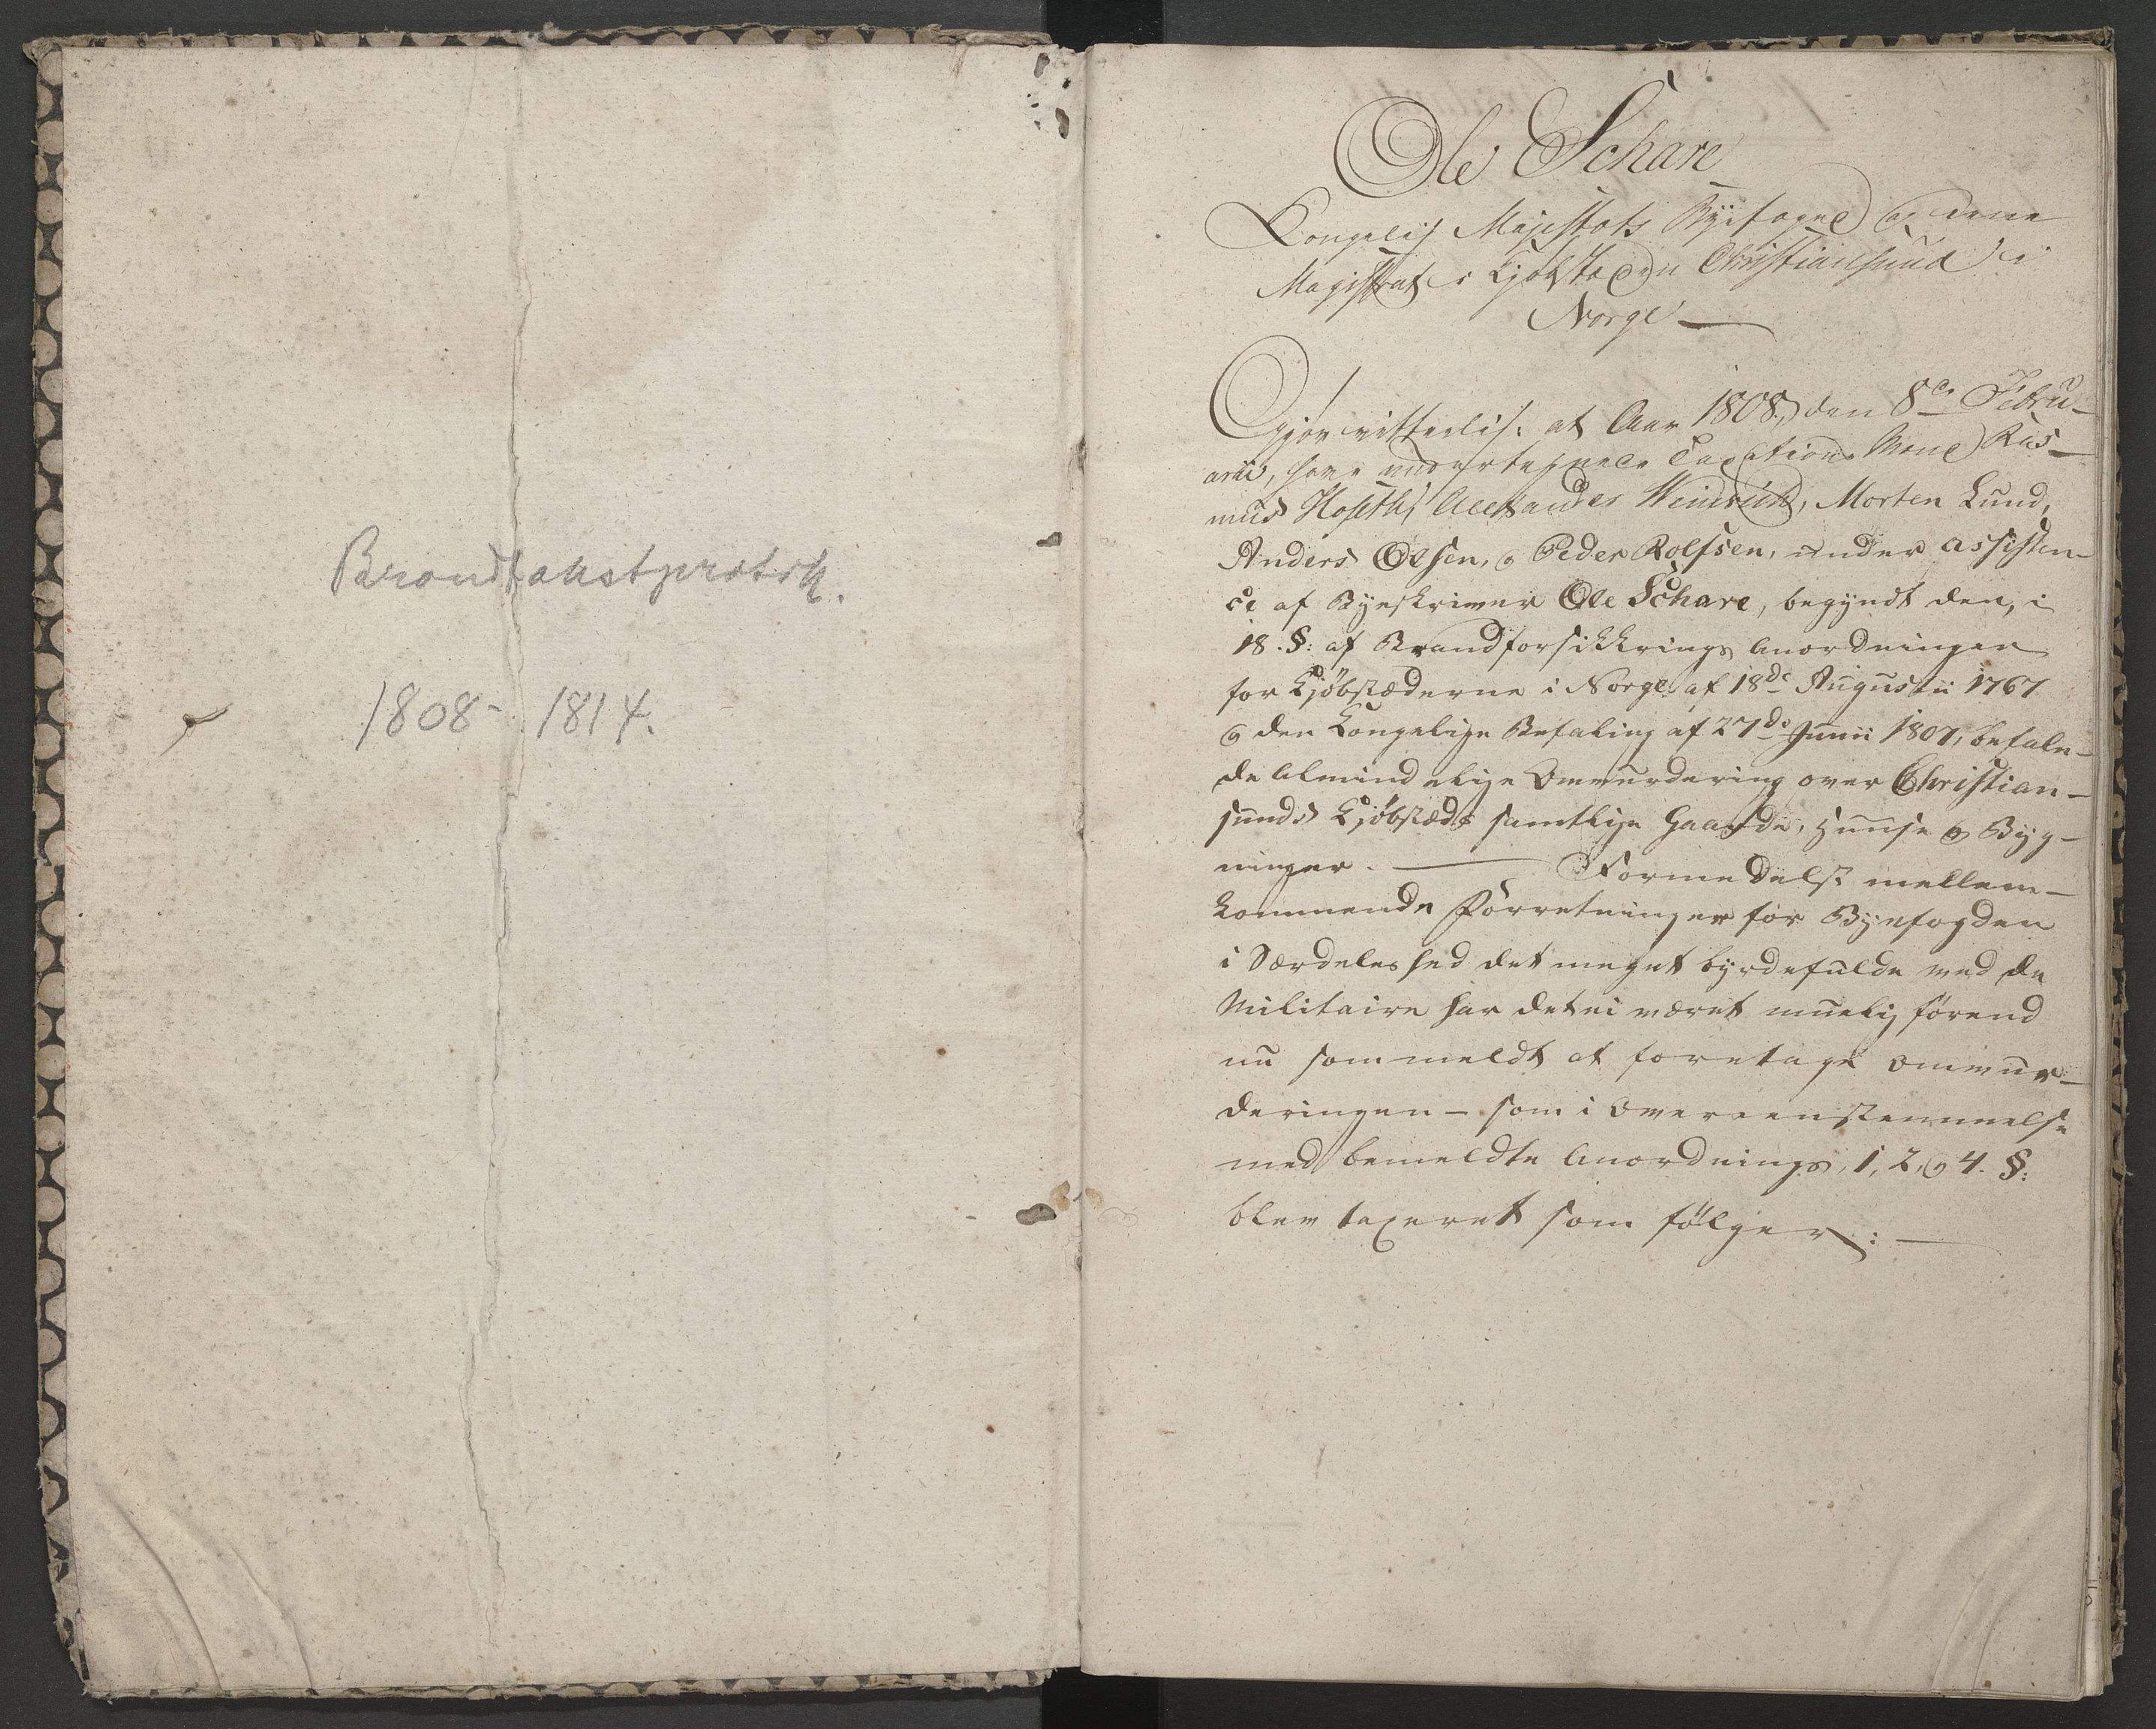 Brandtakstprotok.
1808 - 1814.
Ole Schare
Kongelig Majestæts Byefoged og eene
Magistrat i Kjøbstaden Christiansund i
Norge
Gjør vitterlig: at Aar 1808, den 8de Febru-
arii, have undertegnede Taxations Mænd Ras-
mus Hoseth, Alexander Weinrich, Morten Lund,
Anders Olsen, og Peder Rolfsen, under assisten-
ce af Byeskriver Ole Schare, begyndt den, i
18. §: af Brandforsikkrings Anordningen
for Kjøbstæderne i Norge af 18de Augustii 1767
og den Kongelige Befaling af 27de Junii 1807, befale-
de almindelige Omvurdering over Christian-
sunds Kjøbstæds samtlige Gaarde, Huuse og Byg-
ninger. — Formedelst mellem-
kommende Forretninger for Byefogden
i Særdeleshed det meget byrdefulde ved de
Militaire har det ei været muelig førend
nu sommeldt at foretage omvur-
deringen — som i Overeenstemmelse
med bemeldte Anordnings, 1, 2, og 4. §:
blev taxeret som følger: —